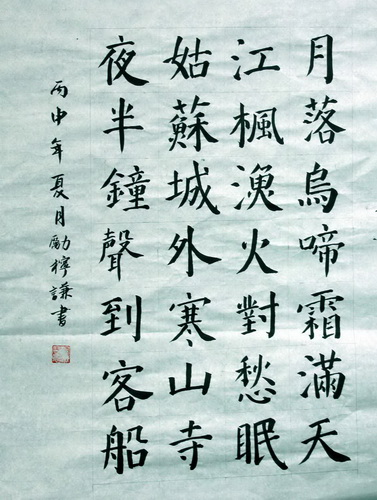 月落烏啼霜滿天
江楓漁火對愁眠
姑蘇城外寒山寺
夜半鐘聲到客船
丙申年夏月勵檸謙書